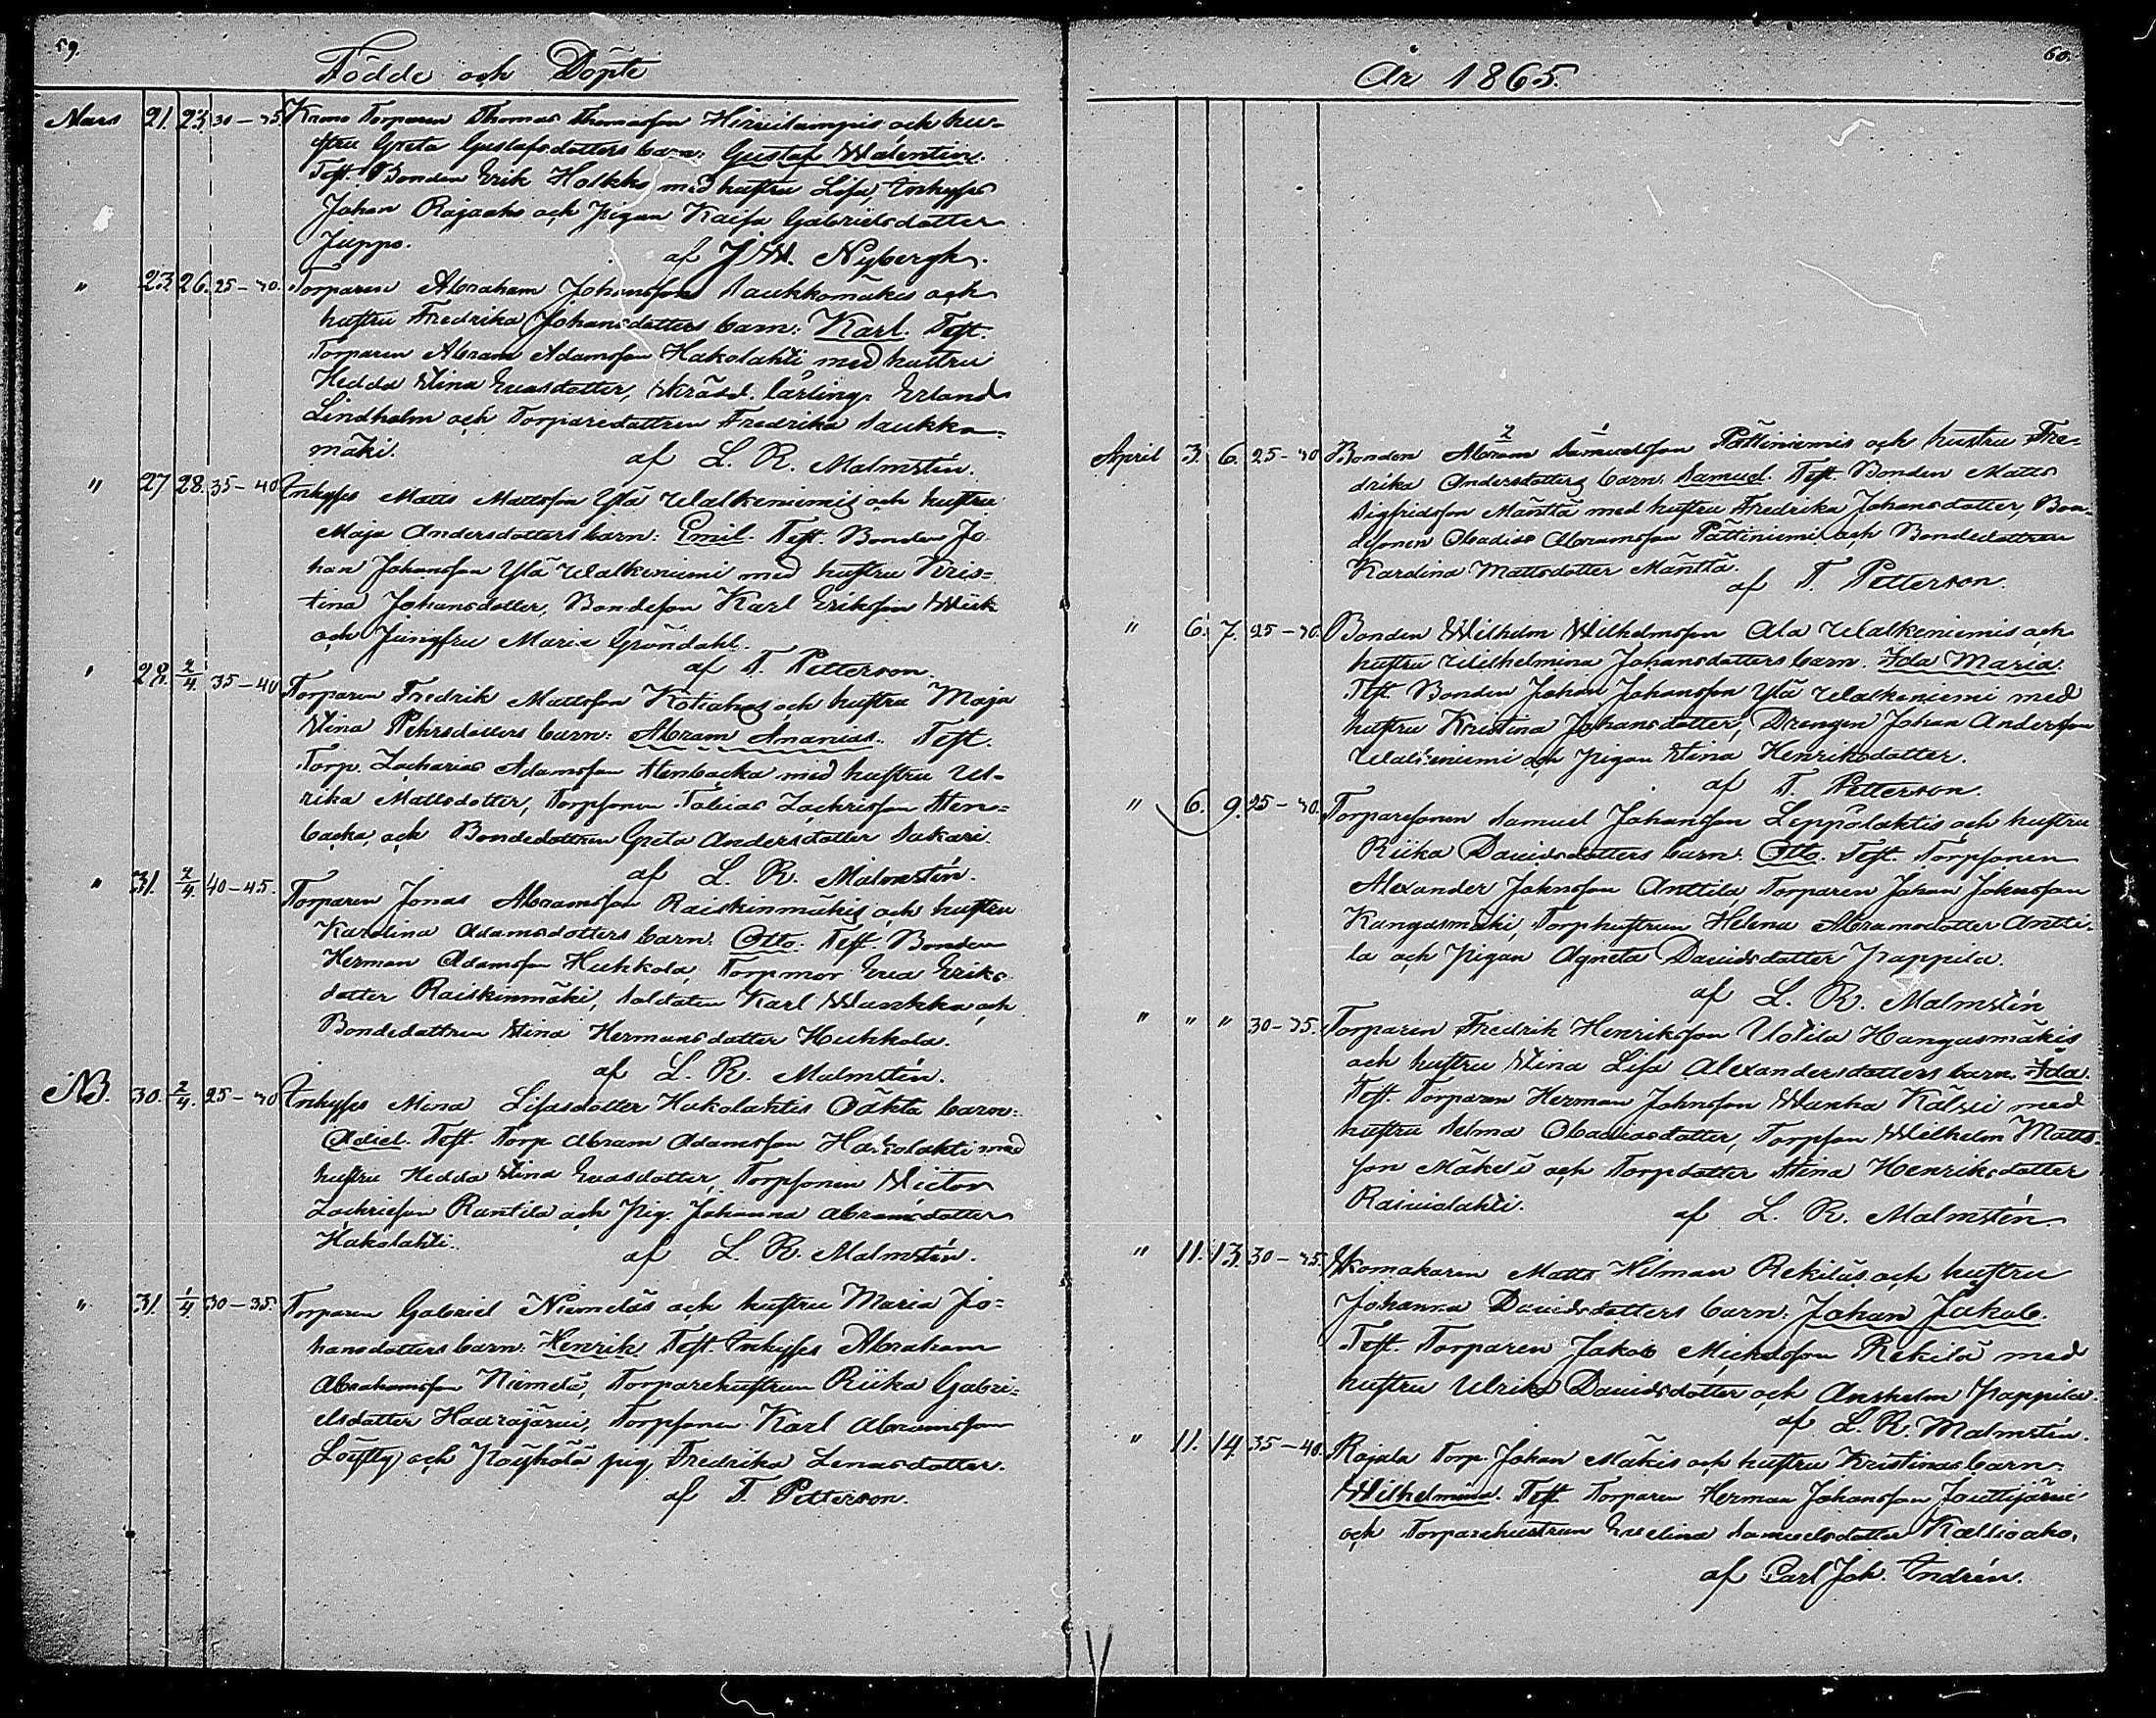 59.
Födde och Döpte
Mars 21. 23. 30–35. Krono Torparen Thomas Thomasson Hirvilampis och hu-
stru Greta Gustafsdotters barn: Gustaf Walentin.
Test. Bonden Erik Holkko med hustru Lisa, Inhyses
Johan Rajaaho och Pigan Kaisa Gabrielsdotter
Juppo. af J W. Nybergh.
" 23. 26. 25–30. Torparen Abraham Johansson Saukkomäkis och
hustru Fredrika Johansdotters barn: Karl. Test.
Torparen Abram Adamsson Hakolahti med hustru
Hedda Stina Evasdotter, Skrädd. lärling. Erland
Lindholm och Torparedottren Fredrika Saukko-
mäki. af L. R. Malmstén.
" 27 28. 35–40 Inhyses Matts Mattsson Ylä Walkeniemis och hustru
Maja Andersdotters barn: Emil. Test. Bonden Jo
han Johansson Ylä Walkeniemi med hustru Kris=
tina Johansdotter, Bondeson Karl Eriksson Wiik
och Jungfru Maria Gröndahl.
af T. Petterson.
" 28. 2/4. 35–40 Torparen Fredrik Mattsson Kotiahos och hustru Maja
Stina Pehrsdotters barn: Abram Ananias. Test.
Torp. Zacharias Adamsson Stenbacka med hustru Ul-
rika Mattsdotter, Torpsonen Tobias Zachrisson Sten=
backa, och Bondedottren Greta Andersdotter Sakari.
af L. R. Malmstén.
" 31. 2/4. 40–45. Torparen Jonas Abramsson Raiskinmäkis och hustru
Karolina Adamsdotters barn: Otto. Test. Bonden
Herman Adamsson Huhkola, Torpmor Eva Eriks
dotter Raiskinmäki, Soldaten Karl Wankka och
Bondedottren Stina Hermansdotter Huhkola.
af L. R. Malmstén.
NB. 30. 2/4. 25–30 Inhyses Mina Lisasdotter Hakolahtis Oäkta barn:
Adiel. Test. Torp. Abram Adamsson Hakolahti med
hustru Hedda Stina Evasdotter, Torpsonen Wictor
Zachrisson Rantila och Pig. Johanna Abramsdotter
Hakolahti. af L. R. Malmstén.
" 31. 1/4. 30–35. Torparen Gabriel Niemeläs och hustru Maria Jo=
hansdotters barn: Henrik. Test. Inhyses Abraham
Abrahamsson Niemelä, Torparehustrun Riika Gabri-
elsdotter Haarajärvi, Torpsonen Karl Abramsson
Löytty och Pöyhölä pig. Fredrika Lenasdotter.
af T. Petterson.
60.
År 1865.
April 3. 6. 25–30 Bonden Abram Samuelsson Pättiniemis och hustru Fre-
2 1
drika Andersdotters barn: Samuel. Test. Bonden Matts
Sigfridsson Mänttä med hustru Fredrika Johansdotter, Bon-
desonen Obadias Abramsson Pättiniemi och Bondedottren
Karolina Mattsdotter Mänttä.
af T. Petterson.
" 6. 7. 25–30. Bonden Wilhelm Wilhelmsson Ala Walkeniemis och
hustru Wilhelmina Johansdotters barn. Ida Maria.
Test. Bonden Johan Johansson Ylä Walkeniemi med
hustru Kristina Johansdotter, Drengen Johan Andersson
Walkeniemi och Pigan Stina Henriksdotter.
af T. Petterson.
" 6. 9. 25–30. Torparesonen Samuel Johansson Leppölahtis och hustru
Riika Davidsdotters barn. Otto. Test. Torpsonen
Alexander Johnsson Anttila, Torparen Johan Johnsson
Kangasmäki, Torphustrun Helena Abramsdotter Antti-
la och Pigan Agneta Davidsdotter Pappila.
af L. R. Malmstén
" " " 30–35. Torparen Fredrik Henriksson Uotila Hangasmäkis
och hustru Stina Lisa Alexandersdotters barn. Ida.
Test. Torparen Herman Johnsson Wanha Kälvi med
hustru Selma Obadiasdotter, Torpson Wilhelm Matts-
son Mäkelä och Torpdotter Stina Henriksdotter
Raiviolahti. af L. R. Malmstén.
" 11. 13. 30–35. Skomakaren Matts Hilman Rekiläs och hustru
Johanna Davidsdotters barn: Johan Jakob.
Test. Torparen Jakob Michelsson Rekilä med
hustru Ulrika Davidsdotter och Anshelm Pappila.
af L. R. Malmstén.
" 11. 14. 35–40. Rajala Torp. Johan Mäkis och hustru Kristinas barn:
Wilhelmina. Test. Torparen Herman Johansson Jouttijärvi
och Torparehustrun Evelina Samuelsdotter Kallioaho.
af Carl Joh. Indrén.